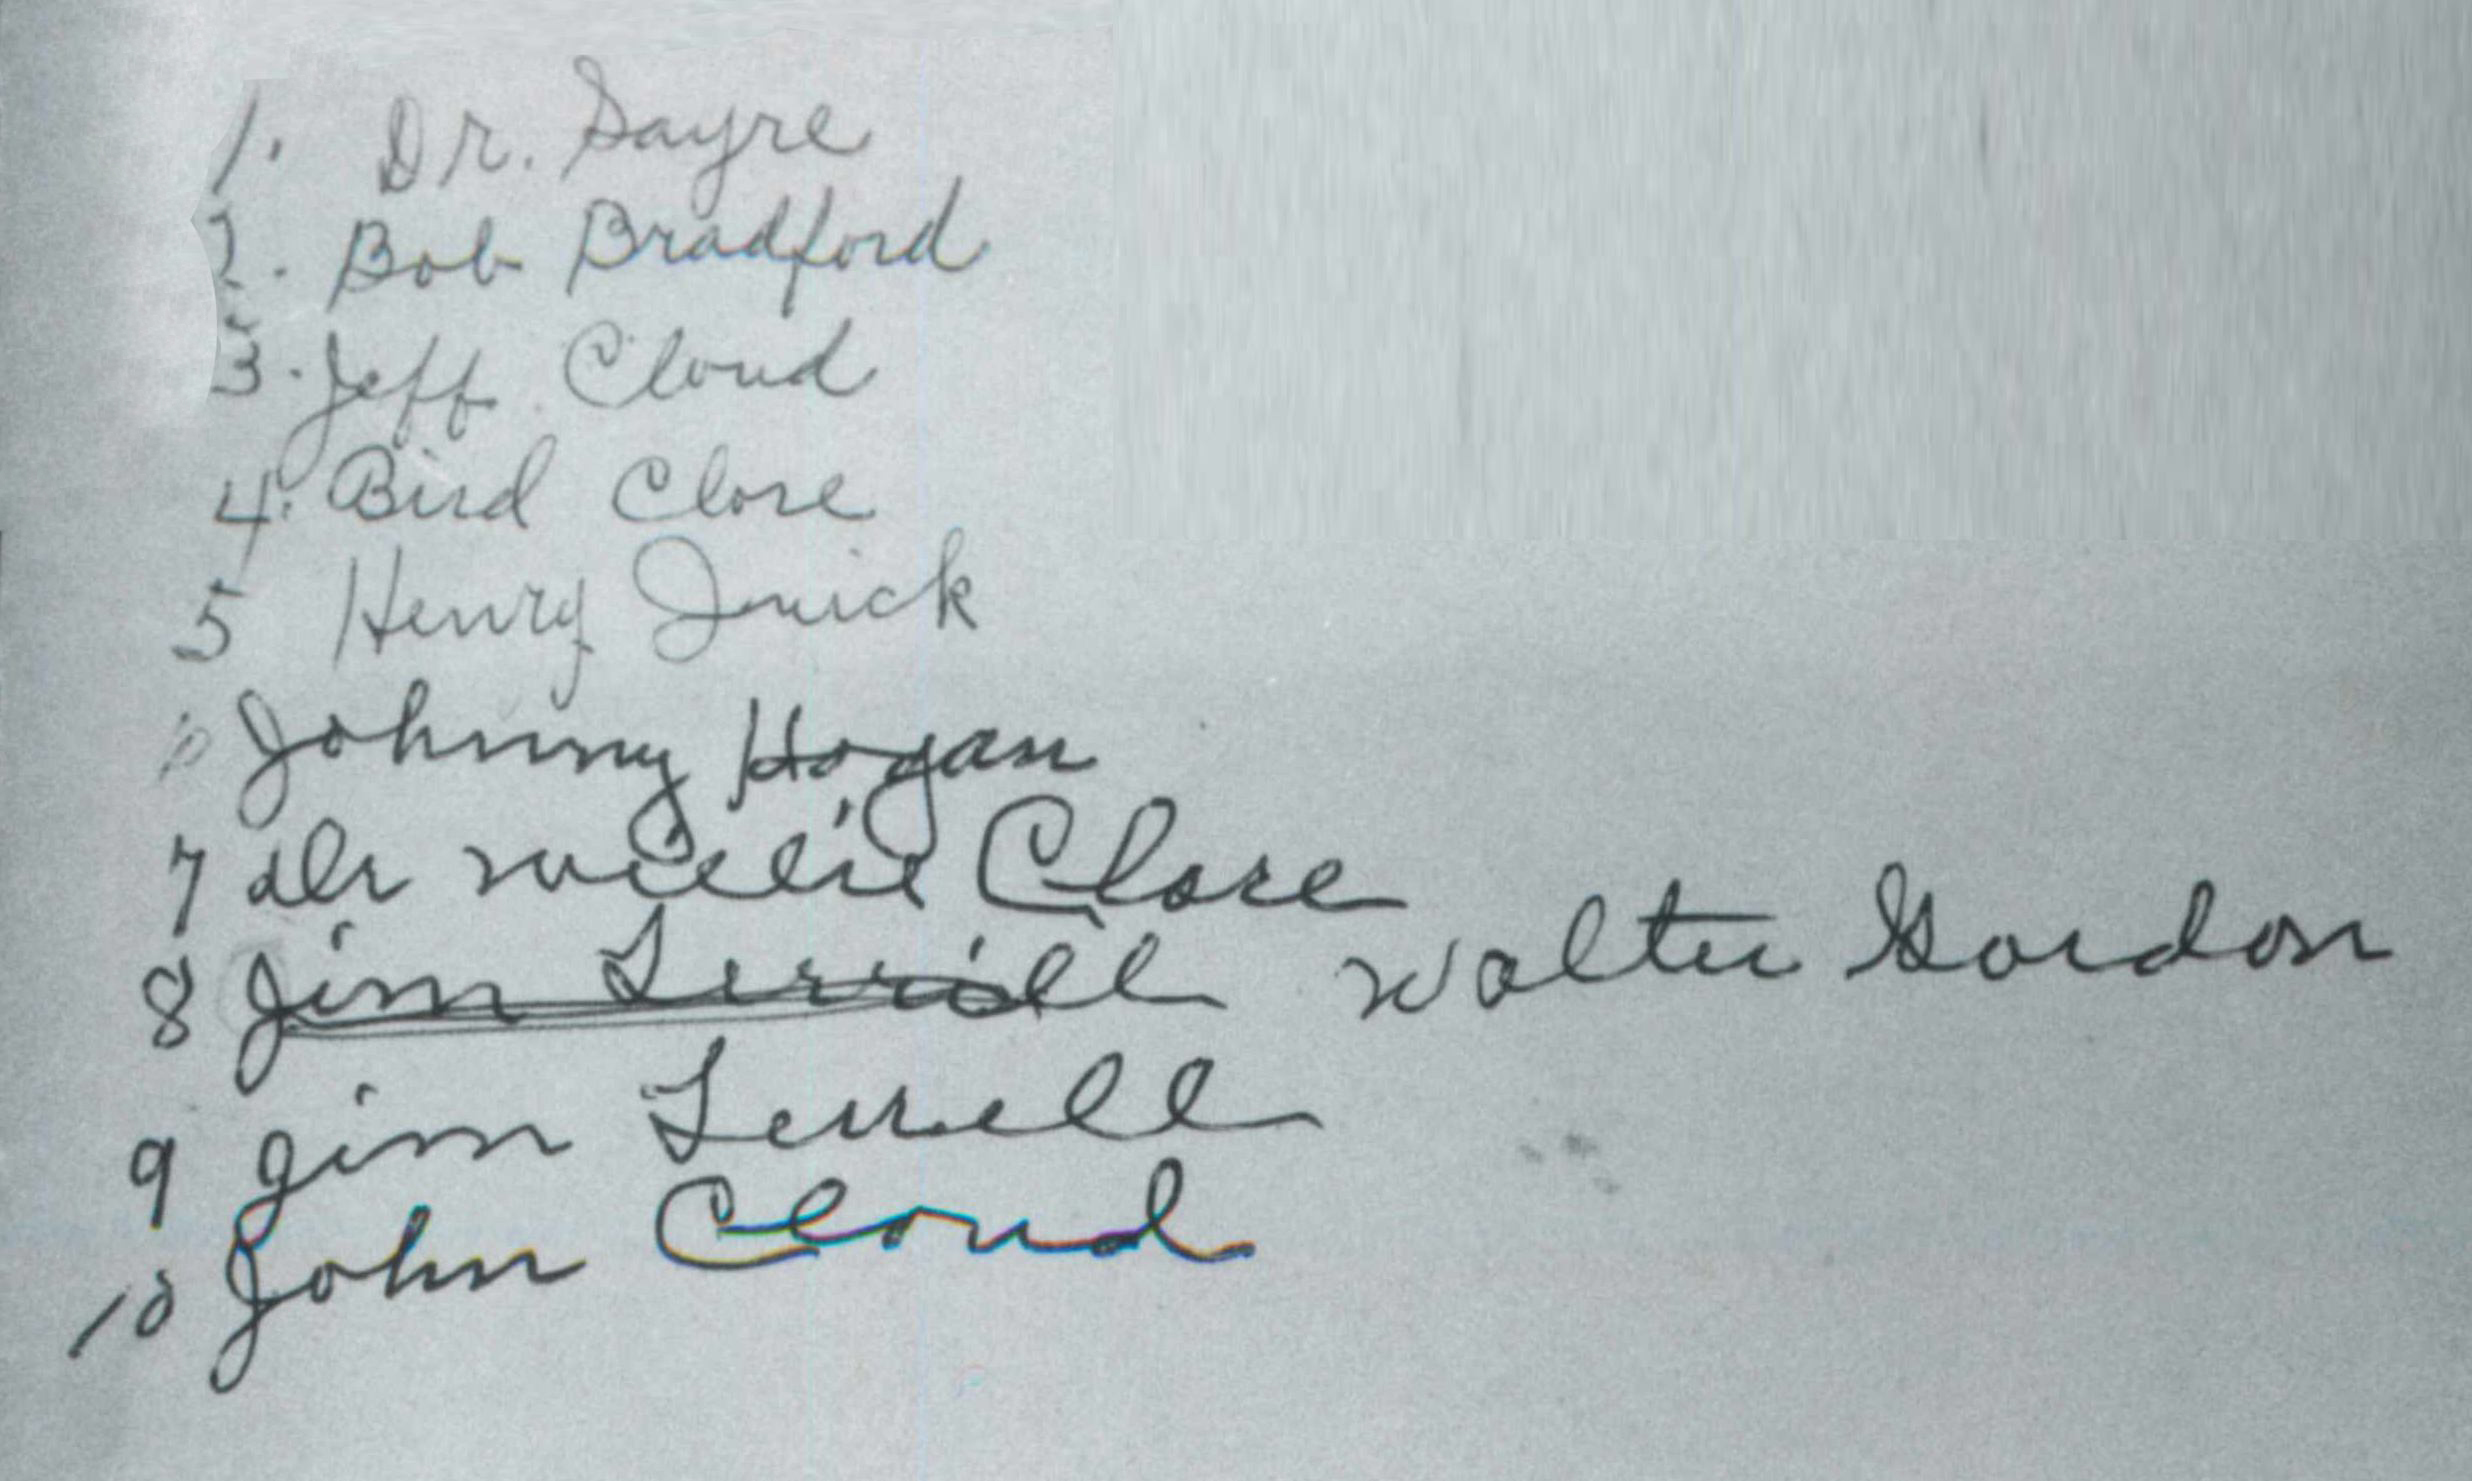 1. Dr. Sayre
2. Bob Bradford
3. Jeff Cloud
4. Bird Clore
5 Henry Quick
Johnny Hogan
7 Dr Willie Clore
8 Jim Terrill Walter Gordon
9 Jim Terrell
10 John Cloud